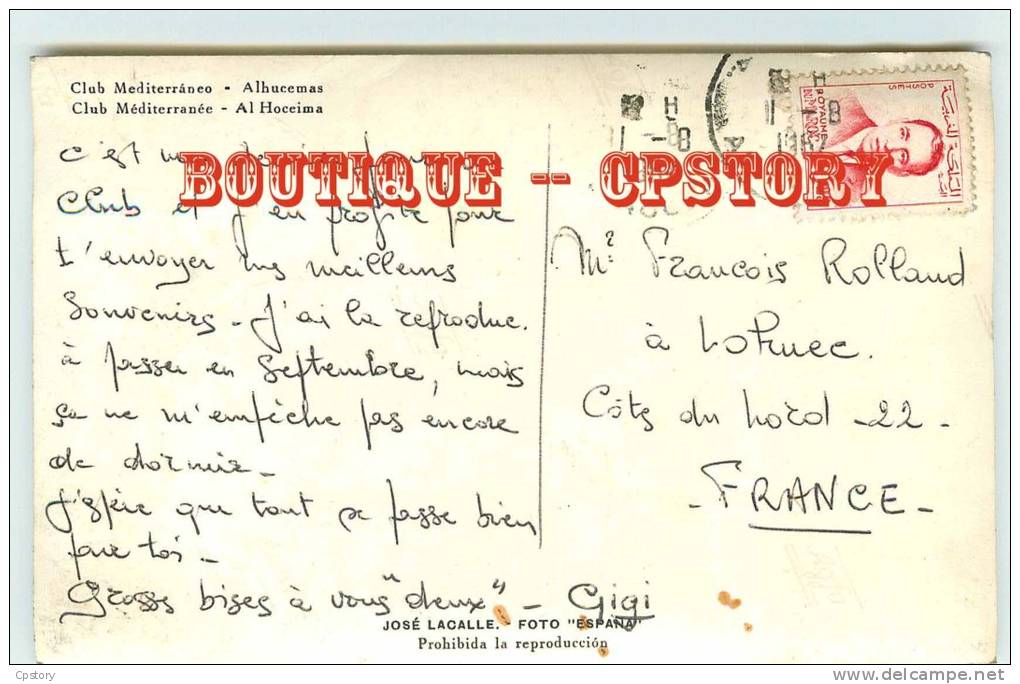 Club Mediterráneo - Alhucemas
Club Méditerranée - Al Hoceima
c'est
BOUTIQUE -- CPSTORY
Club et j'en profite pour
t'envoyer mes meilleurs
souvenirs - J'ai la
à passer en Septembre, mais
ça ne m'empêche pas encore
de dormir -
J'espère que tout se passe bien
pour toi -
Grosses bises à vous "deux" - Gigi
POSTES
ROYAUME
DU MAROC
المملكة المغربية
11 -8
1962
Mr François Rolland
à
Côts du Nord -22-
- FRANCE -
JOSÉ LACALLE. - FOTO "ESPAÑA"
Prohibida la reproducción
Cpstory
www.delcampe.net